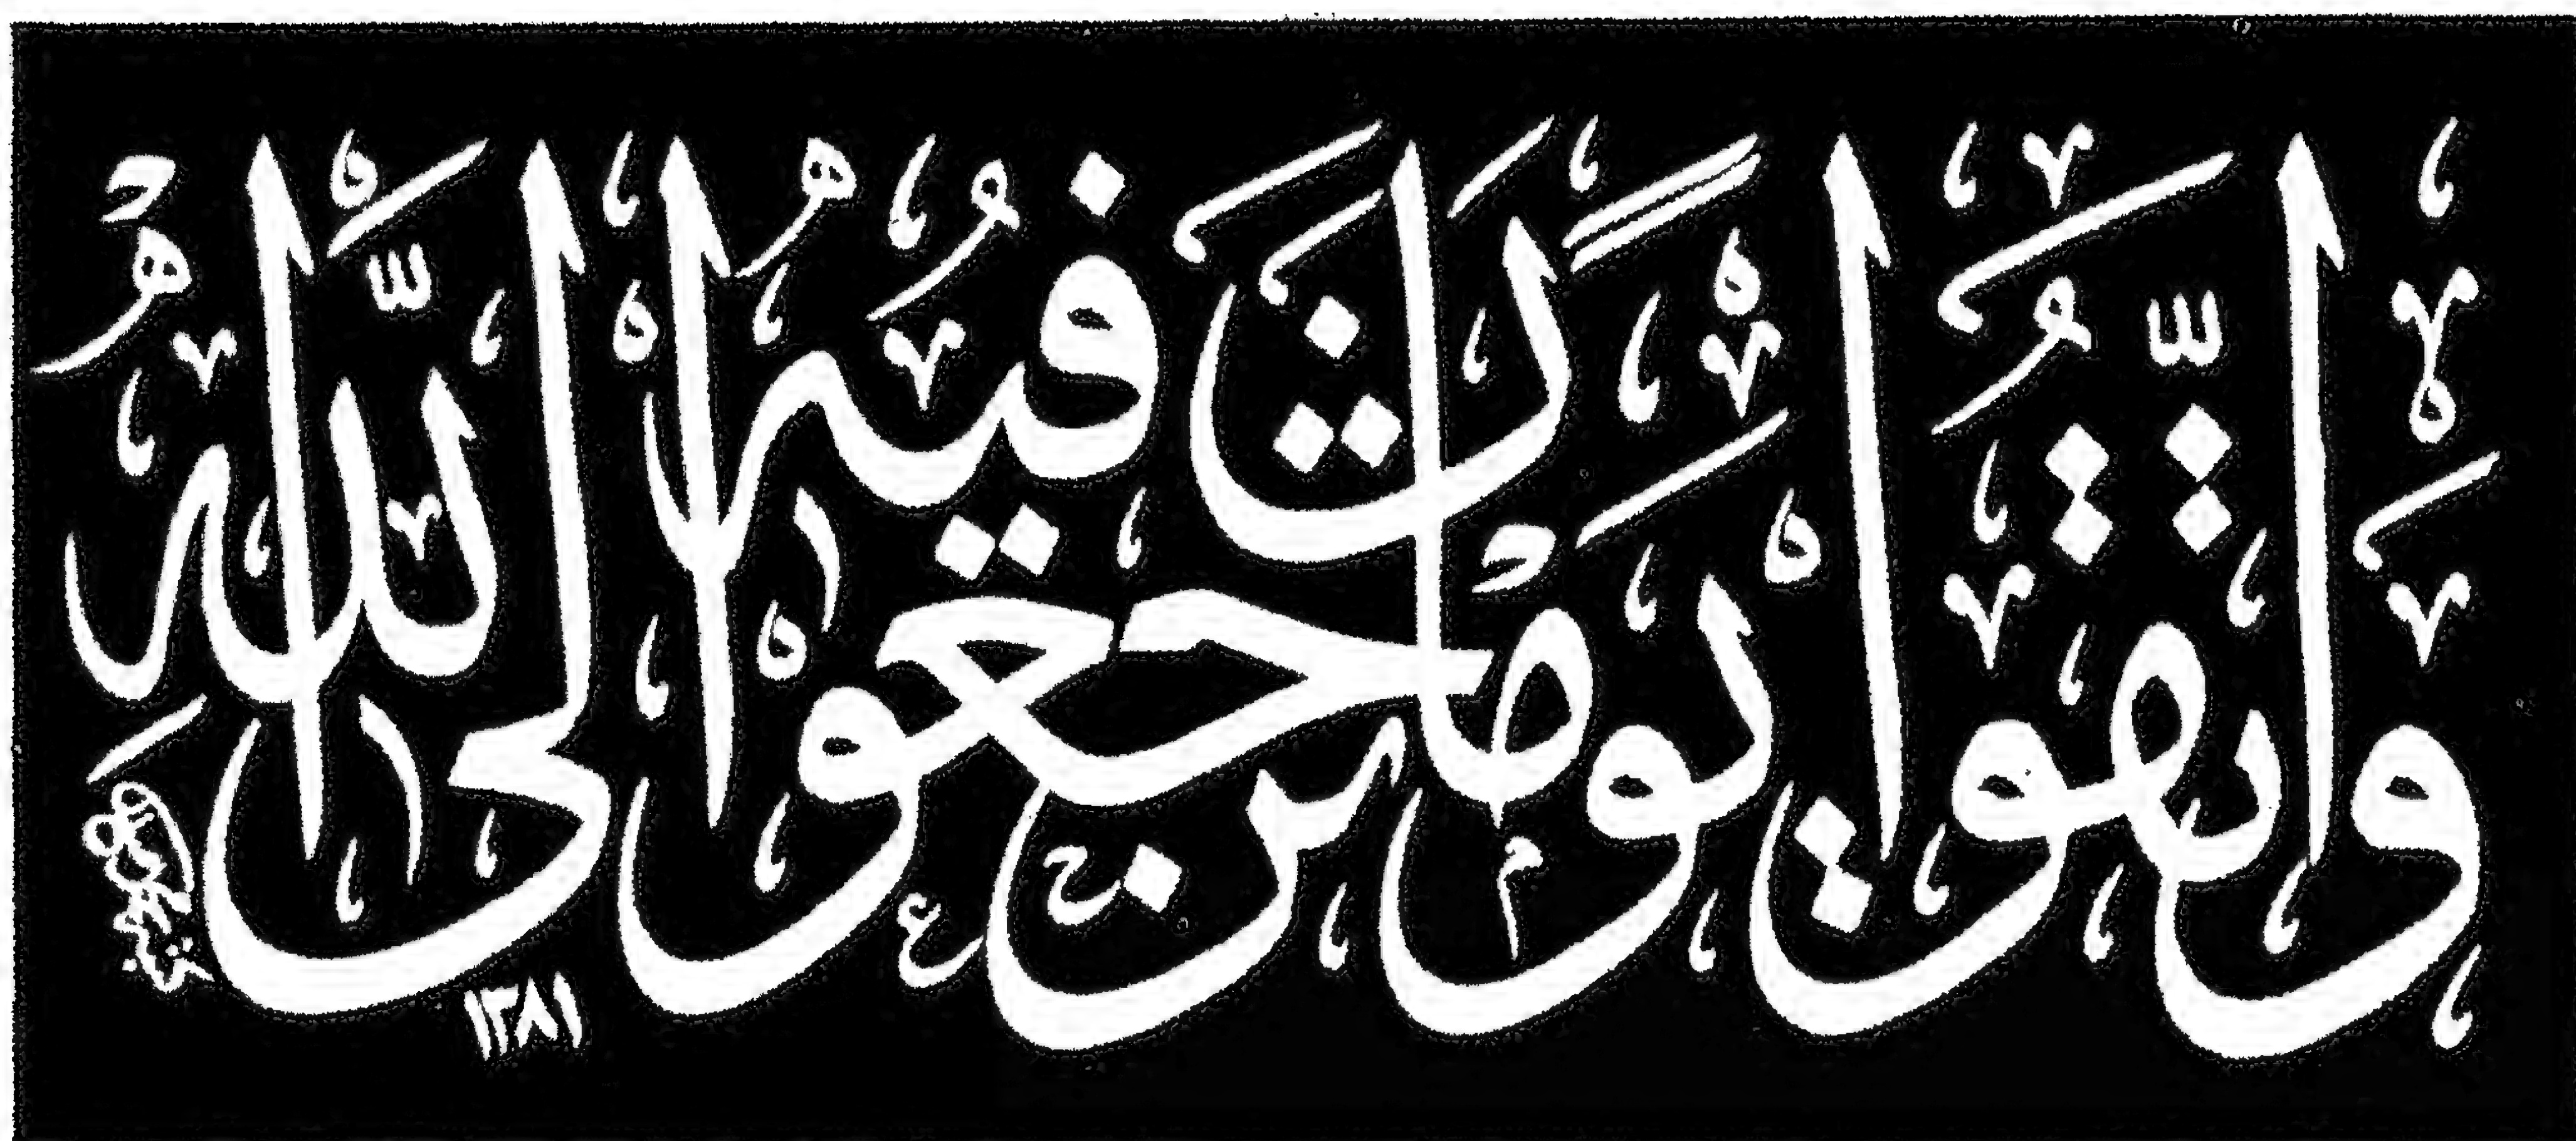 وَاتَّقُوا يَوْمًا تُرْجَعُونَ فِيهِ إِلَى اللَّهِ
١٣٨١